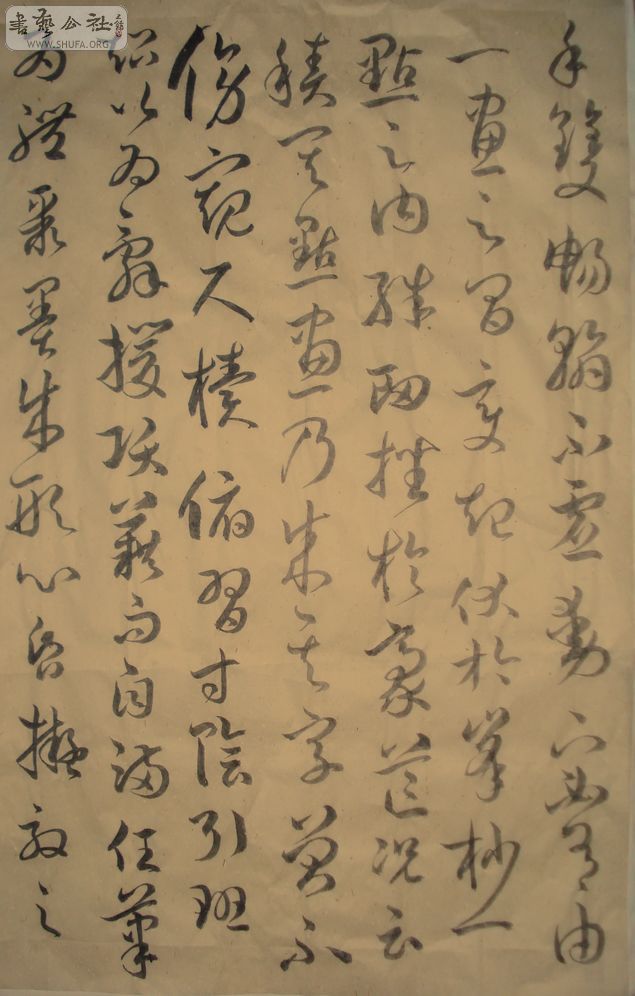 書藝公社
WWW.SHUFA.ORG
手雙暢翰不虛動下必有由
一畫之間變起伏於峯杪一
點之內殊衄挫於豪芒況云
積其點畫乃成其字曾不
傍窺尺牘俯習寸陰引班
超以為辭援項籍而自滿任筆
為體聚墨成形心昏擬效之